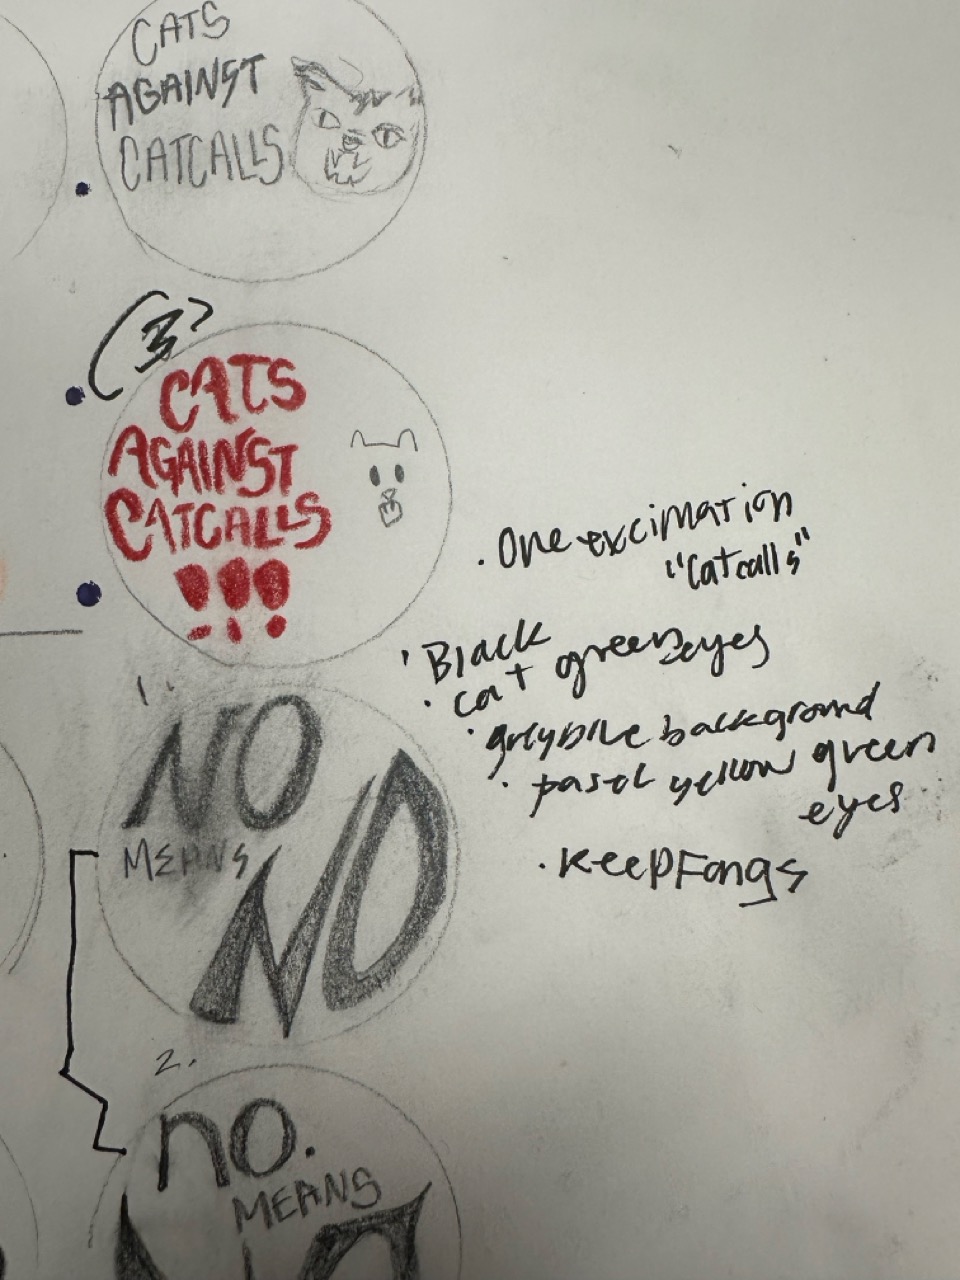 CATS
AGAINST
CATCALLS
(3?
CATS
AGAINST
CATCALLS
!!!
. One exclmation
"Catcalls"
' Black
. cat green eyes
. greyblue background
. pastel yellow green
eyes
. KeepFangs
1.
NO
MEANS
NO
2.
no.
MEANS